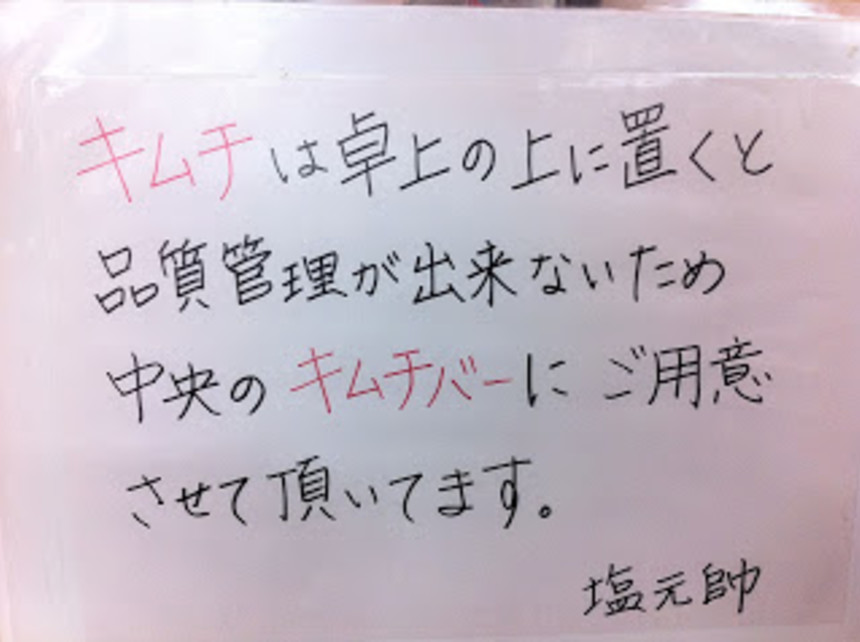 キムチは卓上の上に置くと
品質管理が出来ないため
中央のキムチバーにご用意
させて頂いてます。
塩元帥